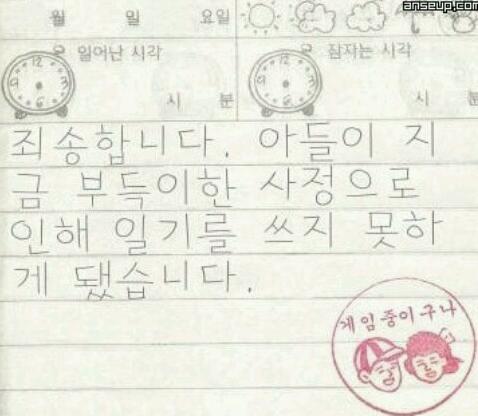 anseup.com
월 일 요일
일어난 시각 잠자는 시각
시 분 시 분
죄송합니다. 아들이 지
금 부득이한 사정으로
인해 일기를 쓰지 못하
게 됐습니다.
게임중이구나